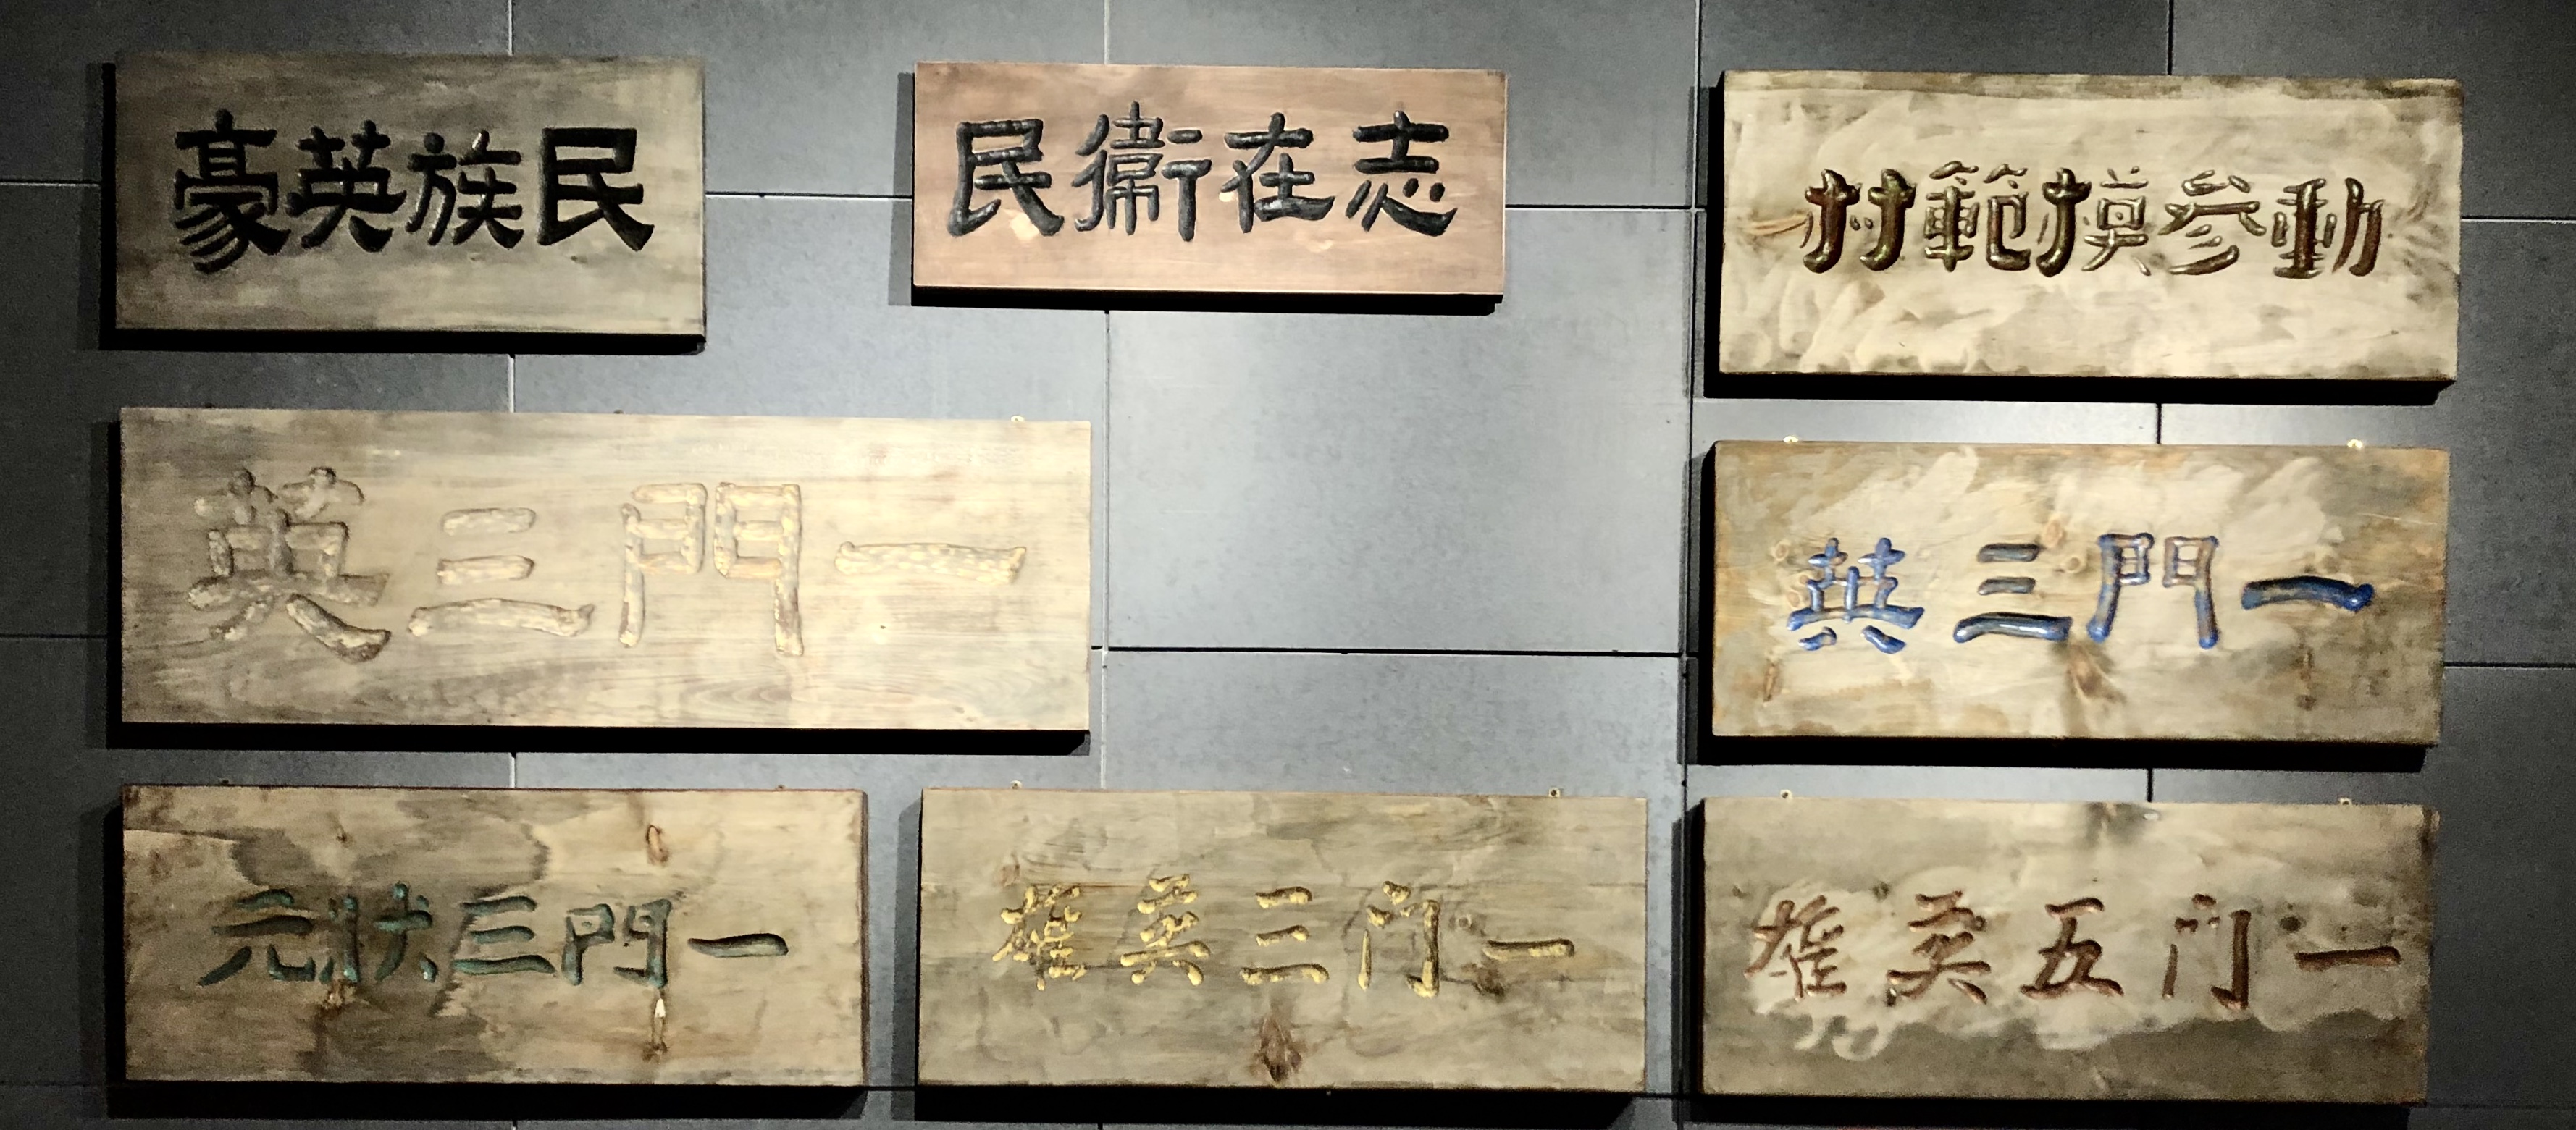 民族英豪
志在衛民
動參模範村
一門三英
一門三英
一門三狀元
一门三英雄
一门五英雄